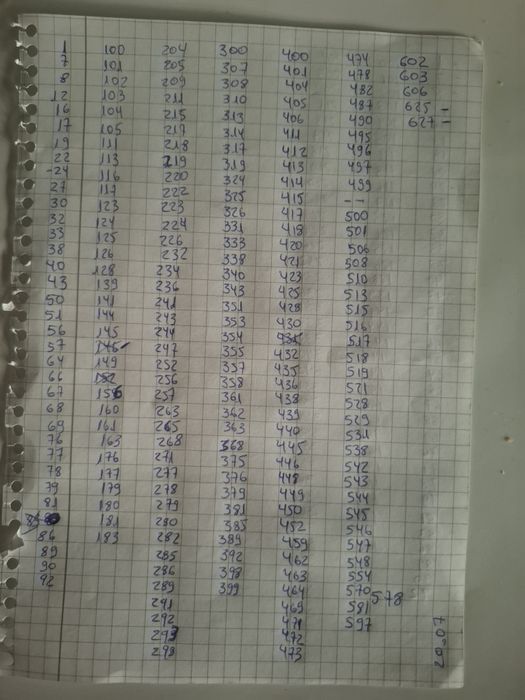 1
7
8
12
16
17
19
22
-24
27
30
32
33
38
40
43
50
51
56
57
64
66
67
68
69
76
77
78
79
81
86
89
90
92
100
101
102
103
104
105
111
113
116
117
123
124
125
126
128
139
141
144
145
146
149
152
156
160
161
163
176
177
179
180
181
183
204
205
209
211
215
217
218
219
220
222
223
224
226
232
234
236
241
243
244
247
252
256
257
263
265
268
271
277
278
279
280
282
285
286
289
291
292
293
298
300
307
308
310
313
314
317
319
324
325
326
331
333
338
340
343
351
353
354
355
357
358
361
362
363
368
375
376
379
381
385
389
392
398
399
400
401
404
405
406
411
412
413
414
415
417
418
420
421
423
425
428
430
431
432
435
436
438
439
440
445
446
448
449
450
452
459
462
463
464
469
471
472
473
474
478
482
487
490
495
496
497
499
--
500
501
506
508
510
513
515
516
517
518
519
521
528
529
531
538
542
543
544
545
546
547
548
554
570
578
581
597
602
603
606
625 -
627 -
20.07